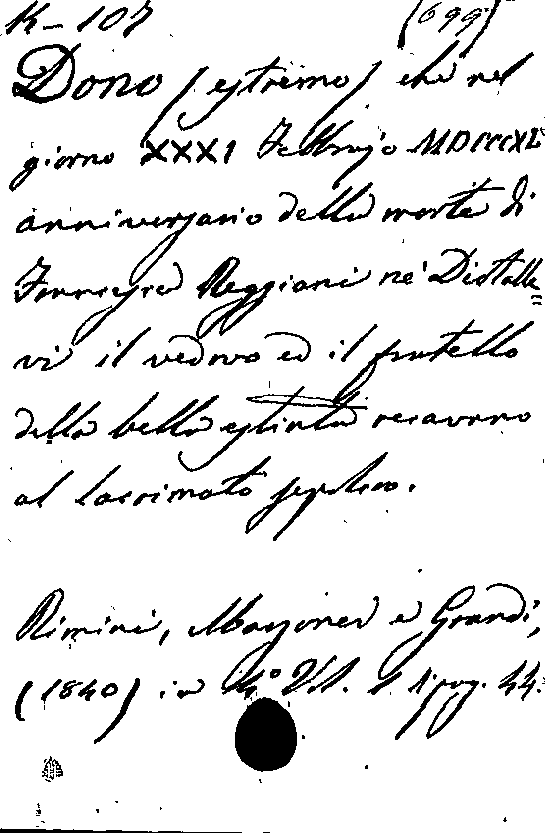 K-107 (699)
Dono (estremo) che nel
giorno XXXI Febbrajo MDCCCXL
anniversario della morte di
Reggiani ne' Distalle
vi il vedovo ed il fratello
della bella estinta recavano
al lacrimato sepolcro.
Rimini, e Grandi,
(1840) in 4° 1 pag. 44.